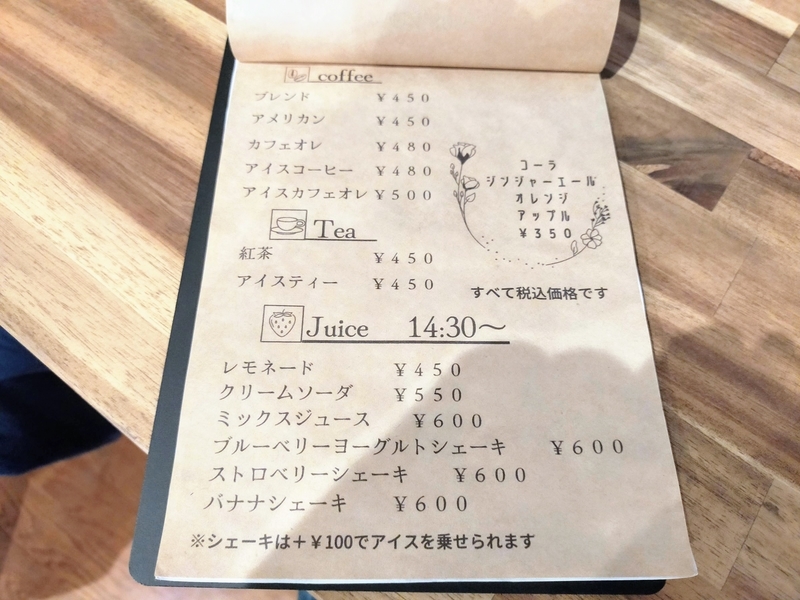 coffee
ブレンド ￥４５０
アメリカン ￥４５０
カフェオレ ￥４８０
アイスコーヒー ￥４８０
アイスカフェオレ ￥５００
コーラ
ジンジャーエール
オレンジ
アップル
￥３５０
Tea
紅茶 ￥４５０
アイスティー ￥４５０
すべて税込価格です
Juice 14:30～
レモネード ￥４５０
クリームソーダ ￥５５０
ミックスジュース ￥６００
ブルーベリーヨーグルトシェーキ ￥６００
ストロベリーシェーキ ￥６００
バナナシェーキ ￥６００
※シェーキは＋￥100でアイスを乗せられます